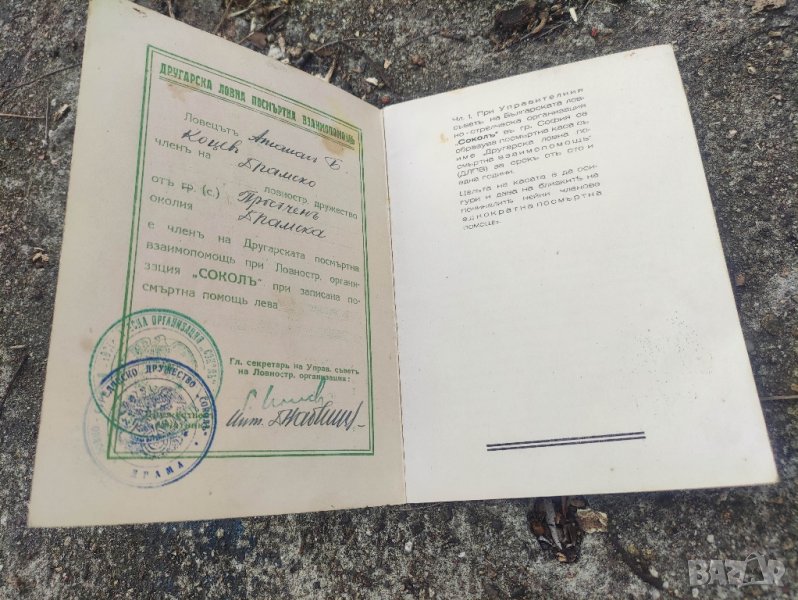 ДРУГАРСКА ЛОВНА ПОСМЪРТНА ВЗАИМОПОМОЩЬ
Ловецътъ Атанас Б.
Коцев
членъ на Драмско
ловностр. дружество
отъ гр. (с.) Пръсечен
околия Драмска
е членъ на Другарската посмъртна
взаимопомощь при Ловностр. органи-
зация "СОКОЛЪ" при записана по-
смъртна помощь лева
Гл. секретарь на Управ. съветъ
на Ловностр. организация:
ДРУЖЕСТВО "СОКОЛЪ"
ДРАМА
Чл. 1. При Управителния
съветъ на Българската лов-
но-стрелческа организация
"Соколъ" въ гр. София се
образува посмъртна каса съ
име „Другарска ловна по-
смъртна взаимопомощь"
(ДЛПВ) за срокъ отъ сто и
една години.
Цельта на касата е да оси-
гури и дава на близките на
починалите нейни членове
еднократна посмъртна
помощь.
BAZAR